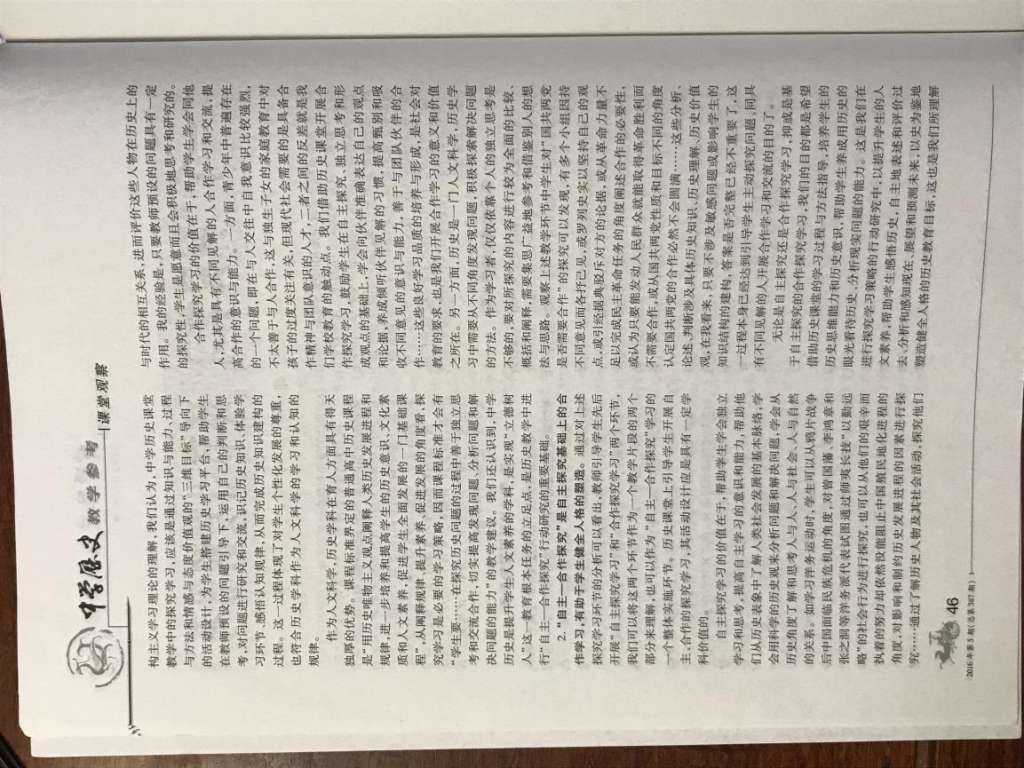 中学历史 教学参考
课堂观察
构主义学习理论的理解,我们认为,中学历史课堂
教学中的探究学习,应该是通过知识与能力、过程
与方法和情感与态度价值观的“三维目标”导向下
的活动设计,为学生搭建历史学习平台、帮助学生
在教师预设的问题引导下,运用自己的判断和思
考,对问题进行研究和交流,识记历史知识,体验学
习环节,感悟认知规律,从而完成历史知识建构的
过程。这一过程体现了对学生个性化发展的尊重,
也符合历史学科作为人文科学的学习和认知的
规律。
作为人文科学,历史学科在育人方面具有得天
独厚的优势。课程标准界定的普通高中历史课程
是“用历史唯物主义观点阐释人类历史发展进程和
规律,进一步培养和提高学生的历史意识、文化素
质和人文素养,促进学生全面发展的一门基础课
程”,从阐释规律、提升素养、促进发展的角度看,探
究学习是必要的学习策略,因而课程标准才会有
“学生要……在探究历史问题的过程中善于独立思
考和交流合作,切实提高发现问题、分析问题和解
决问题的能力”的教学建议。我们还认识到,中学
历史是提升学生人文素养的学科,是实现“立德树
人”这一教育根本任务的立足点,是历史教学中进
行“自主—合作探究”行动研究的重要基础。
2.“自主—合作探究”是自主探究基础上的合
作学习,有助于学生健全人格的塑造。通过对上述
探究学习环节的分析可以看出,教师引导学生先后
开展“自主探究学习”和“合作探究学习”两个环节,
我们可以将这两个环节作为一个教学片段的两个
部分来理解,也可以作为“自主—合作探究”学习的
一个整体实施环节。历史课堂上引导学生开展自
主、合作的探究学习,其活动设计应是具有一定学
科价值的。
自主探究学习的价值在于,帮助学生学会独立
学习和思考,提高自主学习的意识和能力,帮助他
们从历史表象中了解人类社会发展的基本脉络,学
会用科学的历史观来分析问题和解决问题,学会从
历史角度了解和思考人与人、人与社会、人与自然
的关系。如学习洋务运动时,学生可以从鸦片战争
后中国面临民族危机的角度,对曾国藩、李鸿章和
张之洞等洋务派代表试图通过师夷长技“以勤远
略”的社会行为进行探究,也可以从他们的艰辛而
执着的努力却依然不能阻止中国殖民地化进程的
角度,对影响和制约历史发展进程的因素进行探
究……通过了解历史人物及其社会活动,探究他们
与时代的相互关系,进而评价这些人物在历史上的
作用。我的经验是,只要教师预设的问题具有一定
的探究性,学生是愿意而且会积极地思考和研究的。
合作探究学习的价值在于,帮助学生学会同他
人,尤其是具有不同见解的人合作学习和交流,提
高合作的意识与能力。一方面,青少年中普遍存在
的一个问题,即在与人交往中自我意识比较强烈,
不太善于与人合作,这与独生子女的家庭教育中对
孩子的过度关注有关,但现代社会需要的是具备合
作精神与团队意识的人才,二者之间的反差就是我
们学校教育的触动点。我们借助历史课堂开展合
作探究学习,鼓励学生在自主探究、独立思考和形
成观点的基础上,学会向伙伴准确表达自己的观点
和论据,养成倾听伙伴见解的习惯,提高甄别和吸
收不同意见的意识与能力,善于与团队伙伴的合
作……这些良好学习品质的培养与形成,是社会对
教育的要求,也是我们开展合作学习的意义和价值
之所在。另一方面,历史是一门人文科学,历史学
习中需要从不同角度发现问题,积极探索解决问题
的方法。作为学习者,仅仅依靠个人的独立思考是
不够的,要对所探究的内容进行较为全面的比较、
概括和阐释,需要集思广益地参考和借鉴别人的想
法与思路。观察上述教学环节中学生对“国共两党
是否需要合作”的探究可以发现,有多个小组因持
不同意见而各抒己见,或罗列史实以坚持自己的观
点,或引经据典驳斥对方的论据,或从革命力量不
足以完成民主革命任务的角度阐述合作的必要性,
或认为只要能发动人民群众就能取得革命胜利而
不需要合作,或从国共两党性质和目标不同的角度
认定国共两党的合作必然不会圆满……这些分析、
论述、判断涉及具体历史知识、历史理解、历史价值
观,在我看来,只要不涉及敏感问题或影响学生的
知识结构的建构,答案是否完整已经不重要了,这
一过程本身已经达到引导学生主动探究问题、同具
有不同见解的人开展合作学习和交流的目的了。
无论是自主探究还是合作探究学习,抑或是基
于自主探究的合作探究学习,我们的目的都是希望
借助历史课堂的学习过程与方法指导,培养学生的
历史思维能力和历史意识,帮助学生养成用历史的
眼光看待历史、分析现实问题的能力。这是我们在
进行探究学习策略的行动研究中,以提升学生的人
文素养,帮助学生感悟历史,自主地表述和评价过
去、分析和感知现在、展望和预测未来,以史为鉴地
塑造健全人格的历史教育目标,这也是我们所理解
46
2016年第5期(总第367期)